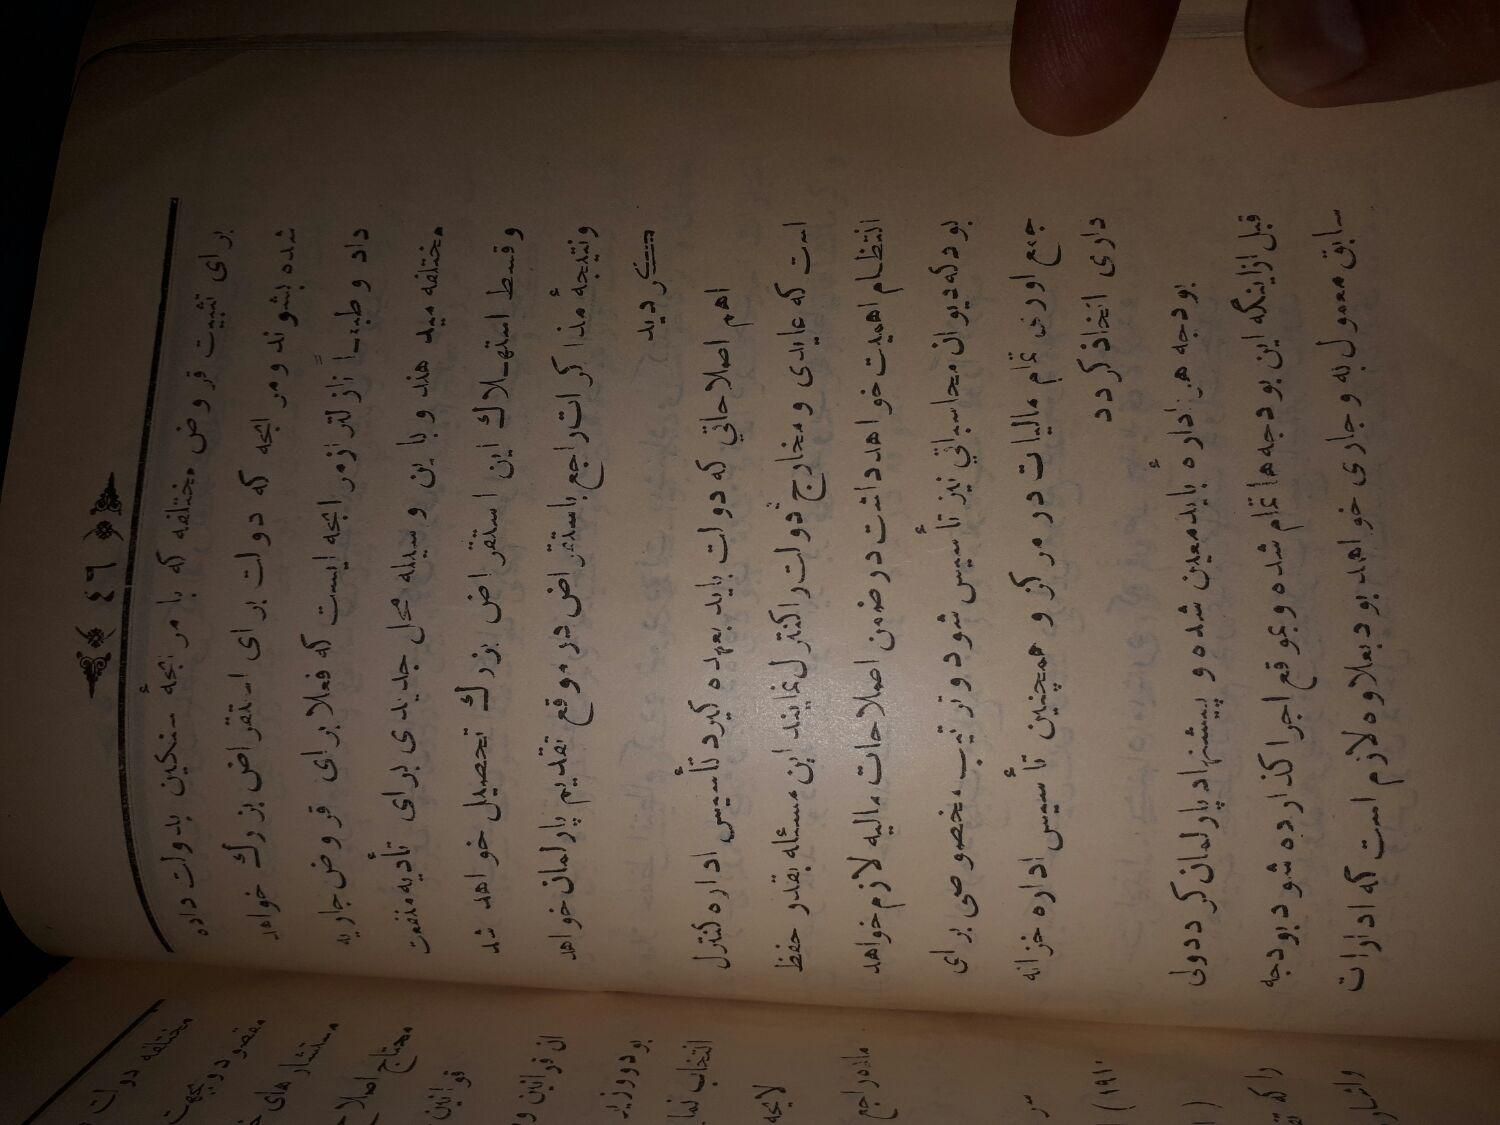 ﴿ ٤٦ ﴾
برای تثبیت قروض مختلفه که با مرابحهٔ سنگین بدولت داده
شده بشوند ومرابحه که دولت برای استقراض بزرك خواهد
داد وطبعاً نازلتر از مرابحه ایست که فعلا برای قروض جاریه
مختلفه میدهند و باین وسیله محل جدیدی برای تأدیه منفعت
وقسط استهلاك این استقراض بزرك تحصیل خواهد شد
ونتیجهٔ مذاکرات راجع باستقراض در موقع تقدیم پارلمان خواهد
گردید
اهم اصلاحاتی که دولت باید بعهده گیرد تأسیس اداره کنترل
است که عایدی و مخارج دولت را کنترل نمایند این مسئله بقدر حفظ
انتظام اهمیت خواهد داشت در ضمن اصلاحات مالیه لازم خواهد
بود که دیوان محاسباتی نیز تأسیس شود و ترتیب مخصوصی برای
جمع اوری تمام مالیات در مرکز و همچنین تأسیس اداره خزانه
داری اتخاذ گردد
بودجه هر ادارهٔ باید معین شده و پیشنهاد پارلمان گردد ولی
قبل از اینکه این بودجه ها تمام شده و بموقع اجرا گذارده شود بودجه
سابق معمول به و جاری خواهد بود بعلاوه لازم است که ادارات
مختلفه دولت
مقصود
مستشارهای
محتاج اصلاح
قوانین
ان قوانین و
بود و وزیر
انتخاب
لایحه
ماده راجع
(۱۹۱۰
را که